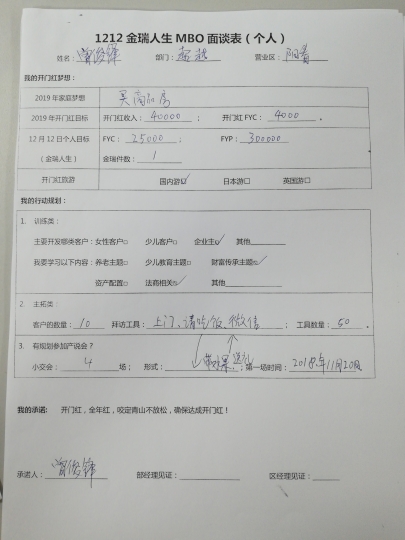 1212 金瑞人生 MBO 面谈表（个人）
姓名：曾俊锋 部门：超越 营业区：阳春
我的开门红梦想：
2019 年家庭梦想 买商品房
2019 年开门红目标 开门红收入：40000； 开门红 FYC：4000。
12 月 12 日个人目标 FYC：25000 FYP：300000
（金瑞人生） 金瑞件数：1
开门红旅游 国内游☑ 日本游□ 英国游□
我的行动规划：
1. 训练类：
主要开发哪类客户：女性客户□ 少儿客户□ 企业主☑ 其他
我要学习以下内容：养老主题□ 少儿教育主题□ 财富传承主题☑
资产配置□ 法商相关☑ 其他
2. 主拓类：
客户的数量：10 拜访工具：上门、请吃饭、微信；工具数量：50。
3. 有规划参加产说会？
小交会：4场； 形式：带水果、送礼；第一场时间：2018年11月20日
我的承诺： 开门红，全年红，咬定青山不放松，确保达成开门红！
承诺人：曾俊锋 部经理见证： 区经理见证：